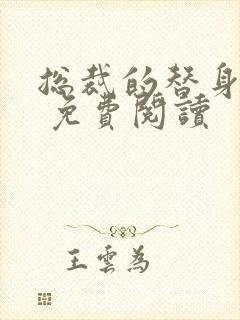 总裁的替身
免費閱讀
王雲為